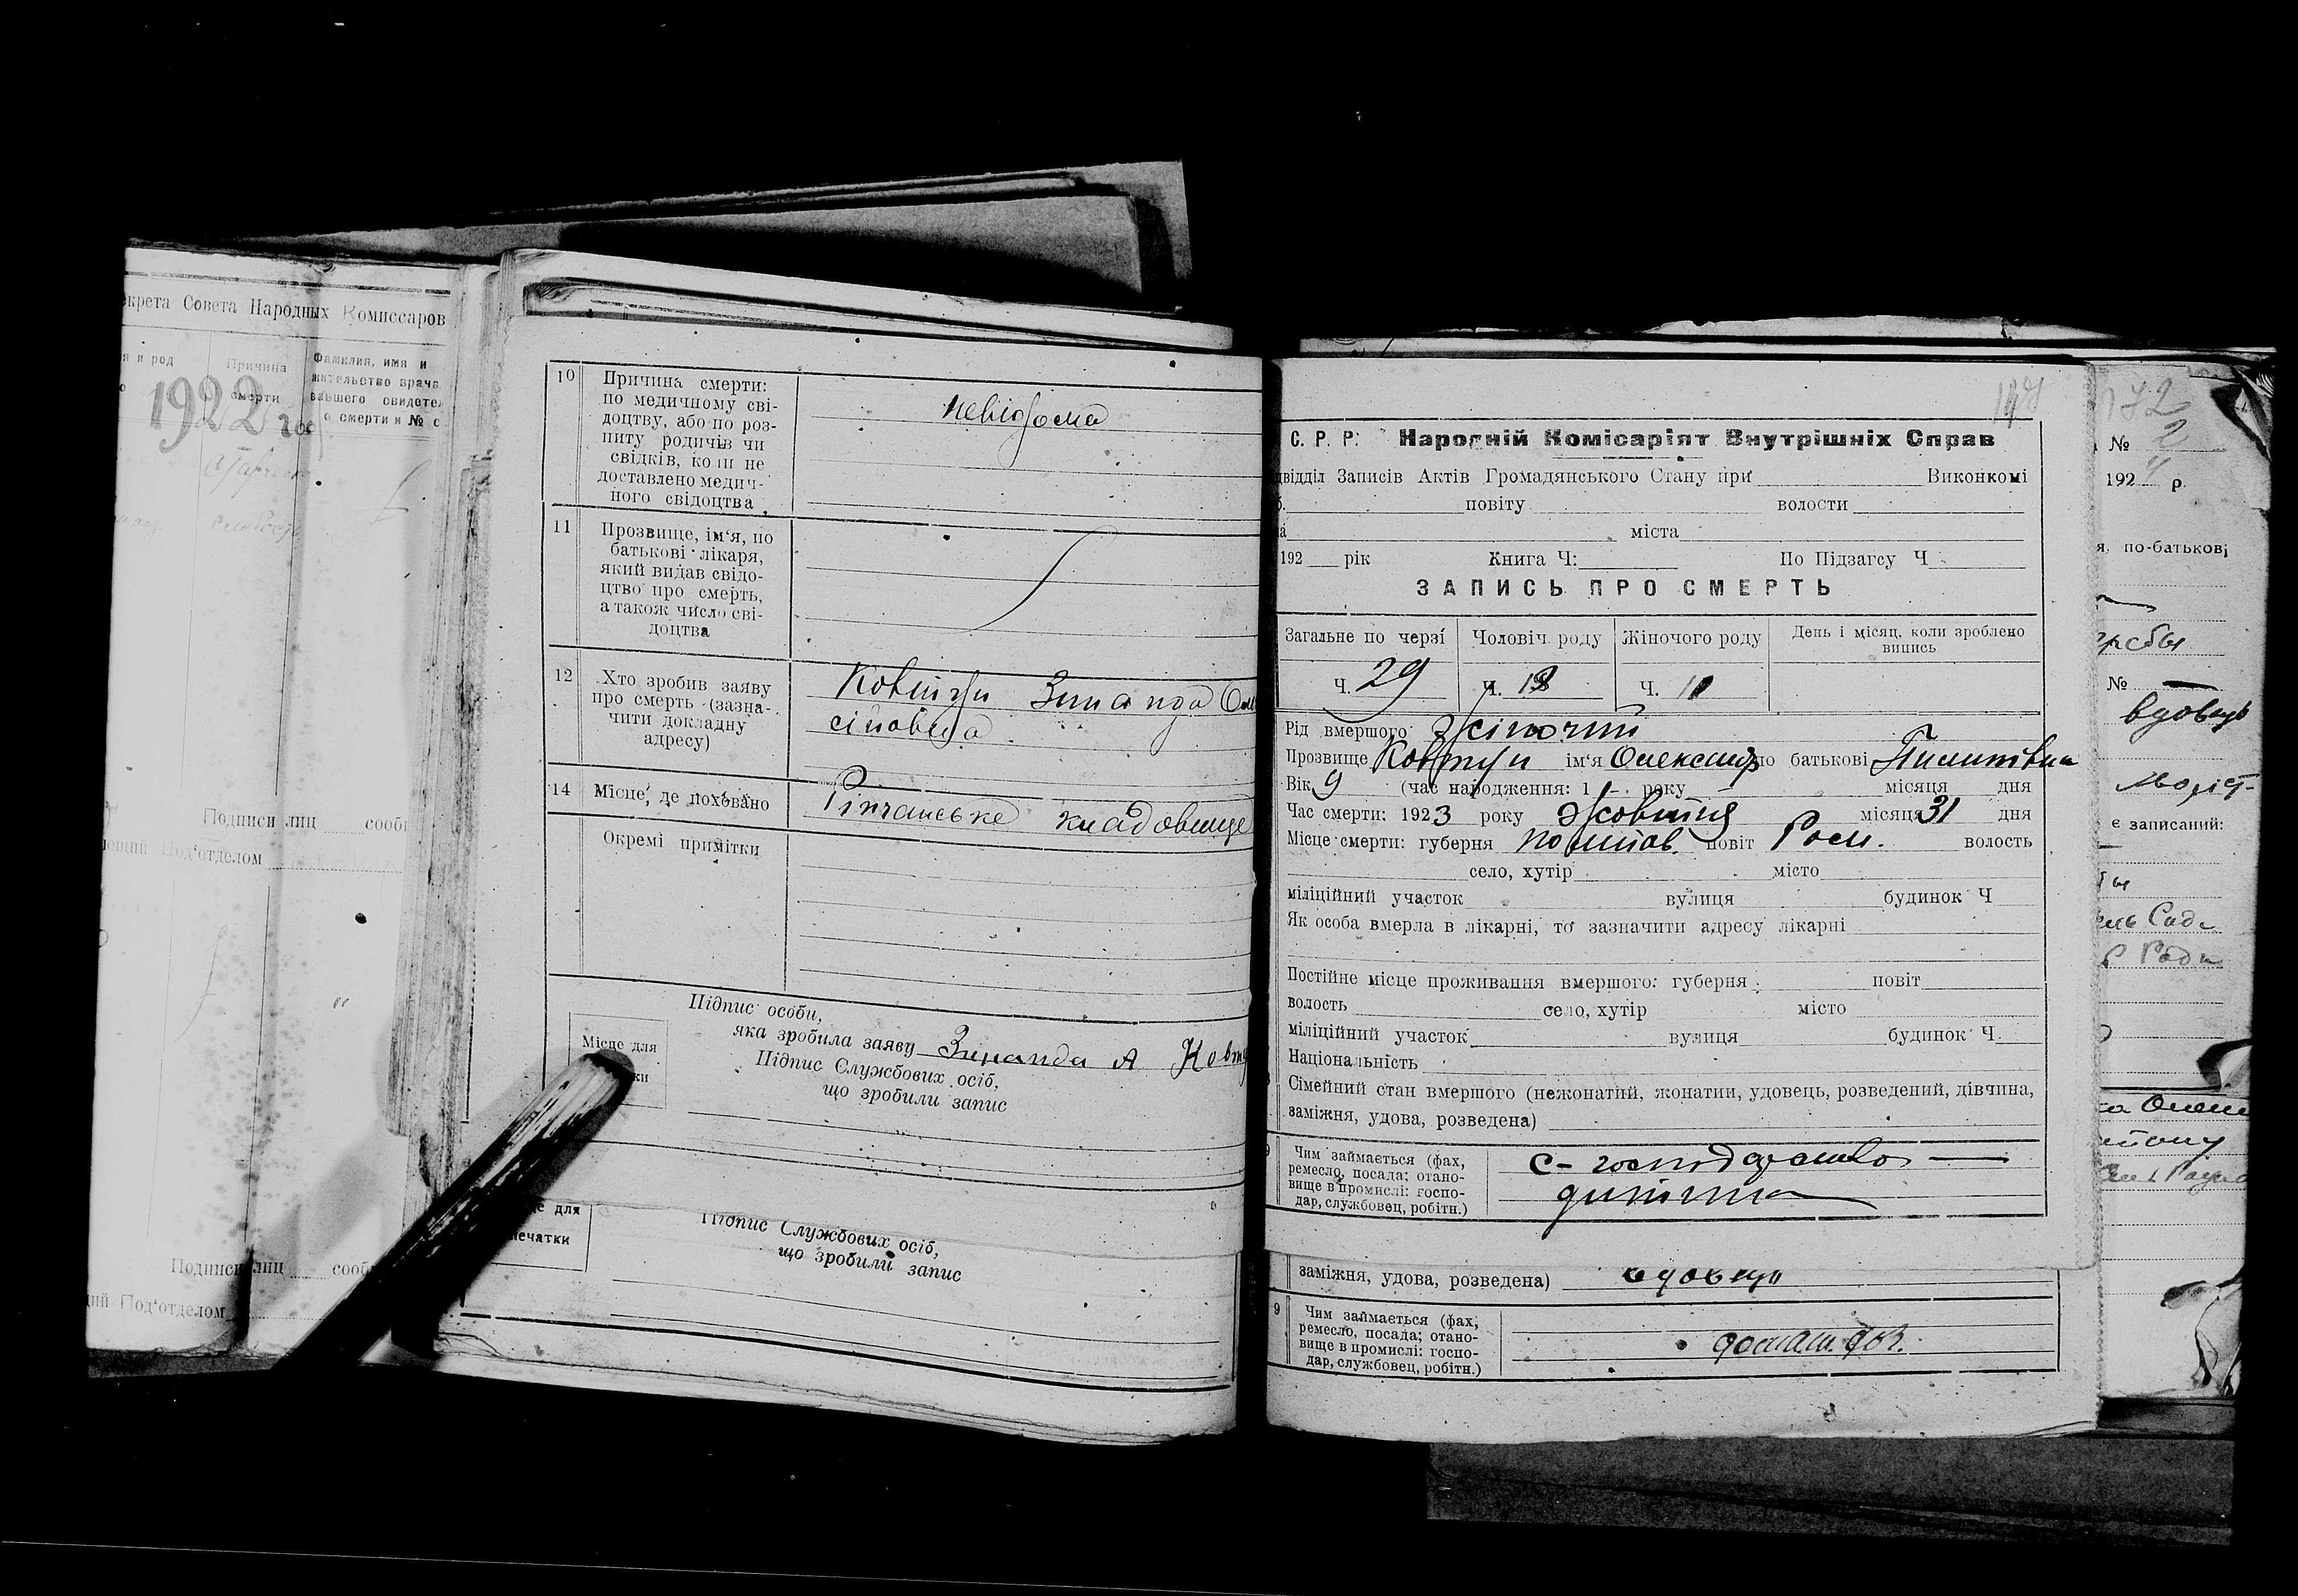 екрета Совета Народных Комиссаров
я и род
Причина
смерти
Фамилия, имя и
жительство врача
вавшего свидете
о смерти и № с
1922 го
Подписи лиц
сооб
Под'отделом
Подписи лиц
сооб
Под'отделом
10
Причина смерти:
по медичному сві-
доцтву, або по роз-
питу родичів чи
свідків, коли не
доставлено медич-
ного свідоцтва
невідома
11
Прозвище, ім'я, по
батькові лікаря,
який видав свідо-
цтво про смерть,
а також число сві-
доцтва
12
Хто зробив заяву
про смерть (зазна-
чити докладну
адресу)
Ковтун Зинаида
14
Місце, де поховано
кладовище
Окремі примітки
Підпис особи,
яка зробила заяву Зинаида А Ковту
Місце для
ки
Підпис Службових осіб,
що зробили запис
це для
печатки
Підпис Службових осіб,
що зробили запис
147
С. Р. Р. Народній Комісаріят Внутрішніх Справ
двідділ Записів Актів Громадянського Стану при Виконкомі
повіту волости
міста
192 рік Книга Ч: По Підзагсу Ч
ЗАПИСЬ ПРО СМЕРТЬ
Загальне по черзі
Чоловіч. роду
Жіночого роду
День і місяц, коли зроблено
випись
Ч. 29
Ч. 18
Ч. 11
Рід вмершого жіночий
Прозвище Ковтун ім'я Олександр по батькові Пилипівна
Вік 9 (час народження: 1 року місяця дня
Час смерти: 1923 року Жовтня місяця 31 дня
Місце смерти: губерня Полтав. повіт Ром. волость
село, хутір місто
міліційний участок вулиця будинок Ч
Як особа вмерла в лікарні, то зазначити адресу лікарні
Постійне місце проживання вмершого: губерня повіт
волость село, хутір місто
міліційний участок вулиця будинок Ч.
Національність
Сімейний стан вмершого (нежонатий, жонатий, удовець, розведений, дівчина,
заміжня, удова, розведена)
Чим займається (фах,
ремесло, посада; стано-
вище в промислі: госпо-
дар, службовец, робітн.)
с-господарство
дитина
заміжня, удова, розведена) вдовець
9
Чим займається (фах,
ремесло, посада; стано-
вище в промислі: госпо-
дар, службовец, робітн.)
172
№ 2
1924 р.
я, по-батькові
№
вдовець
є записаний: